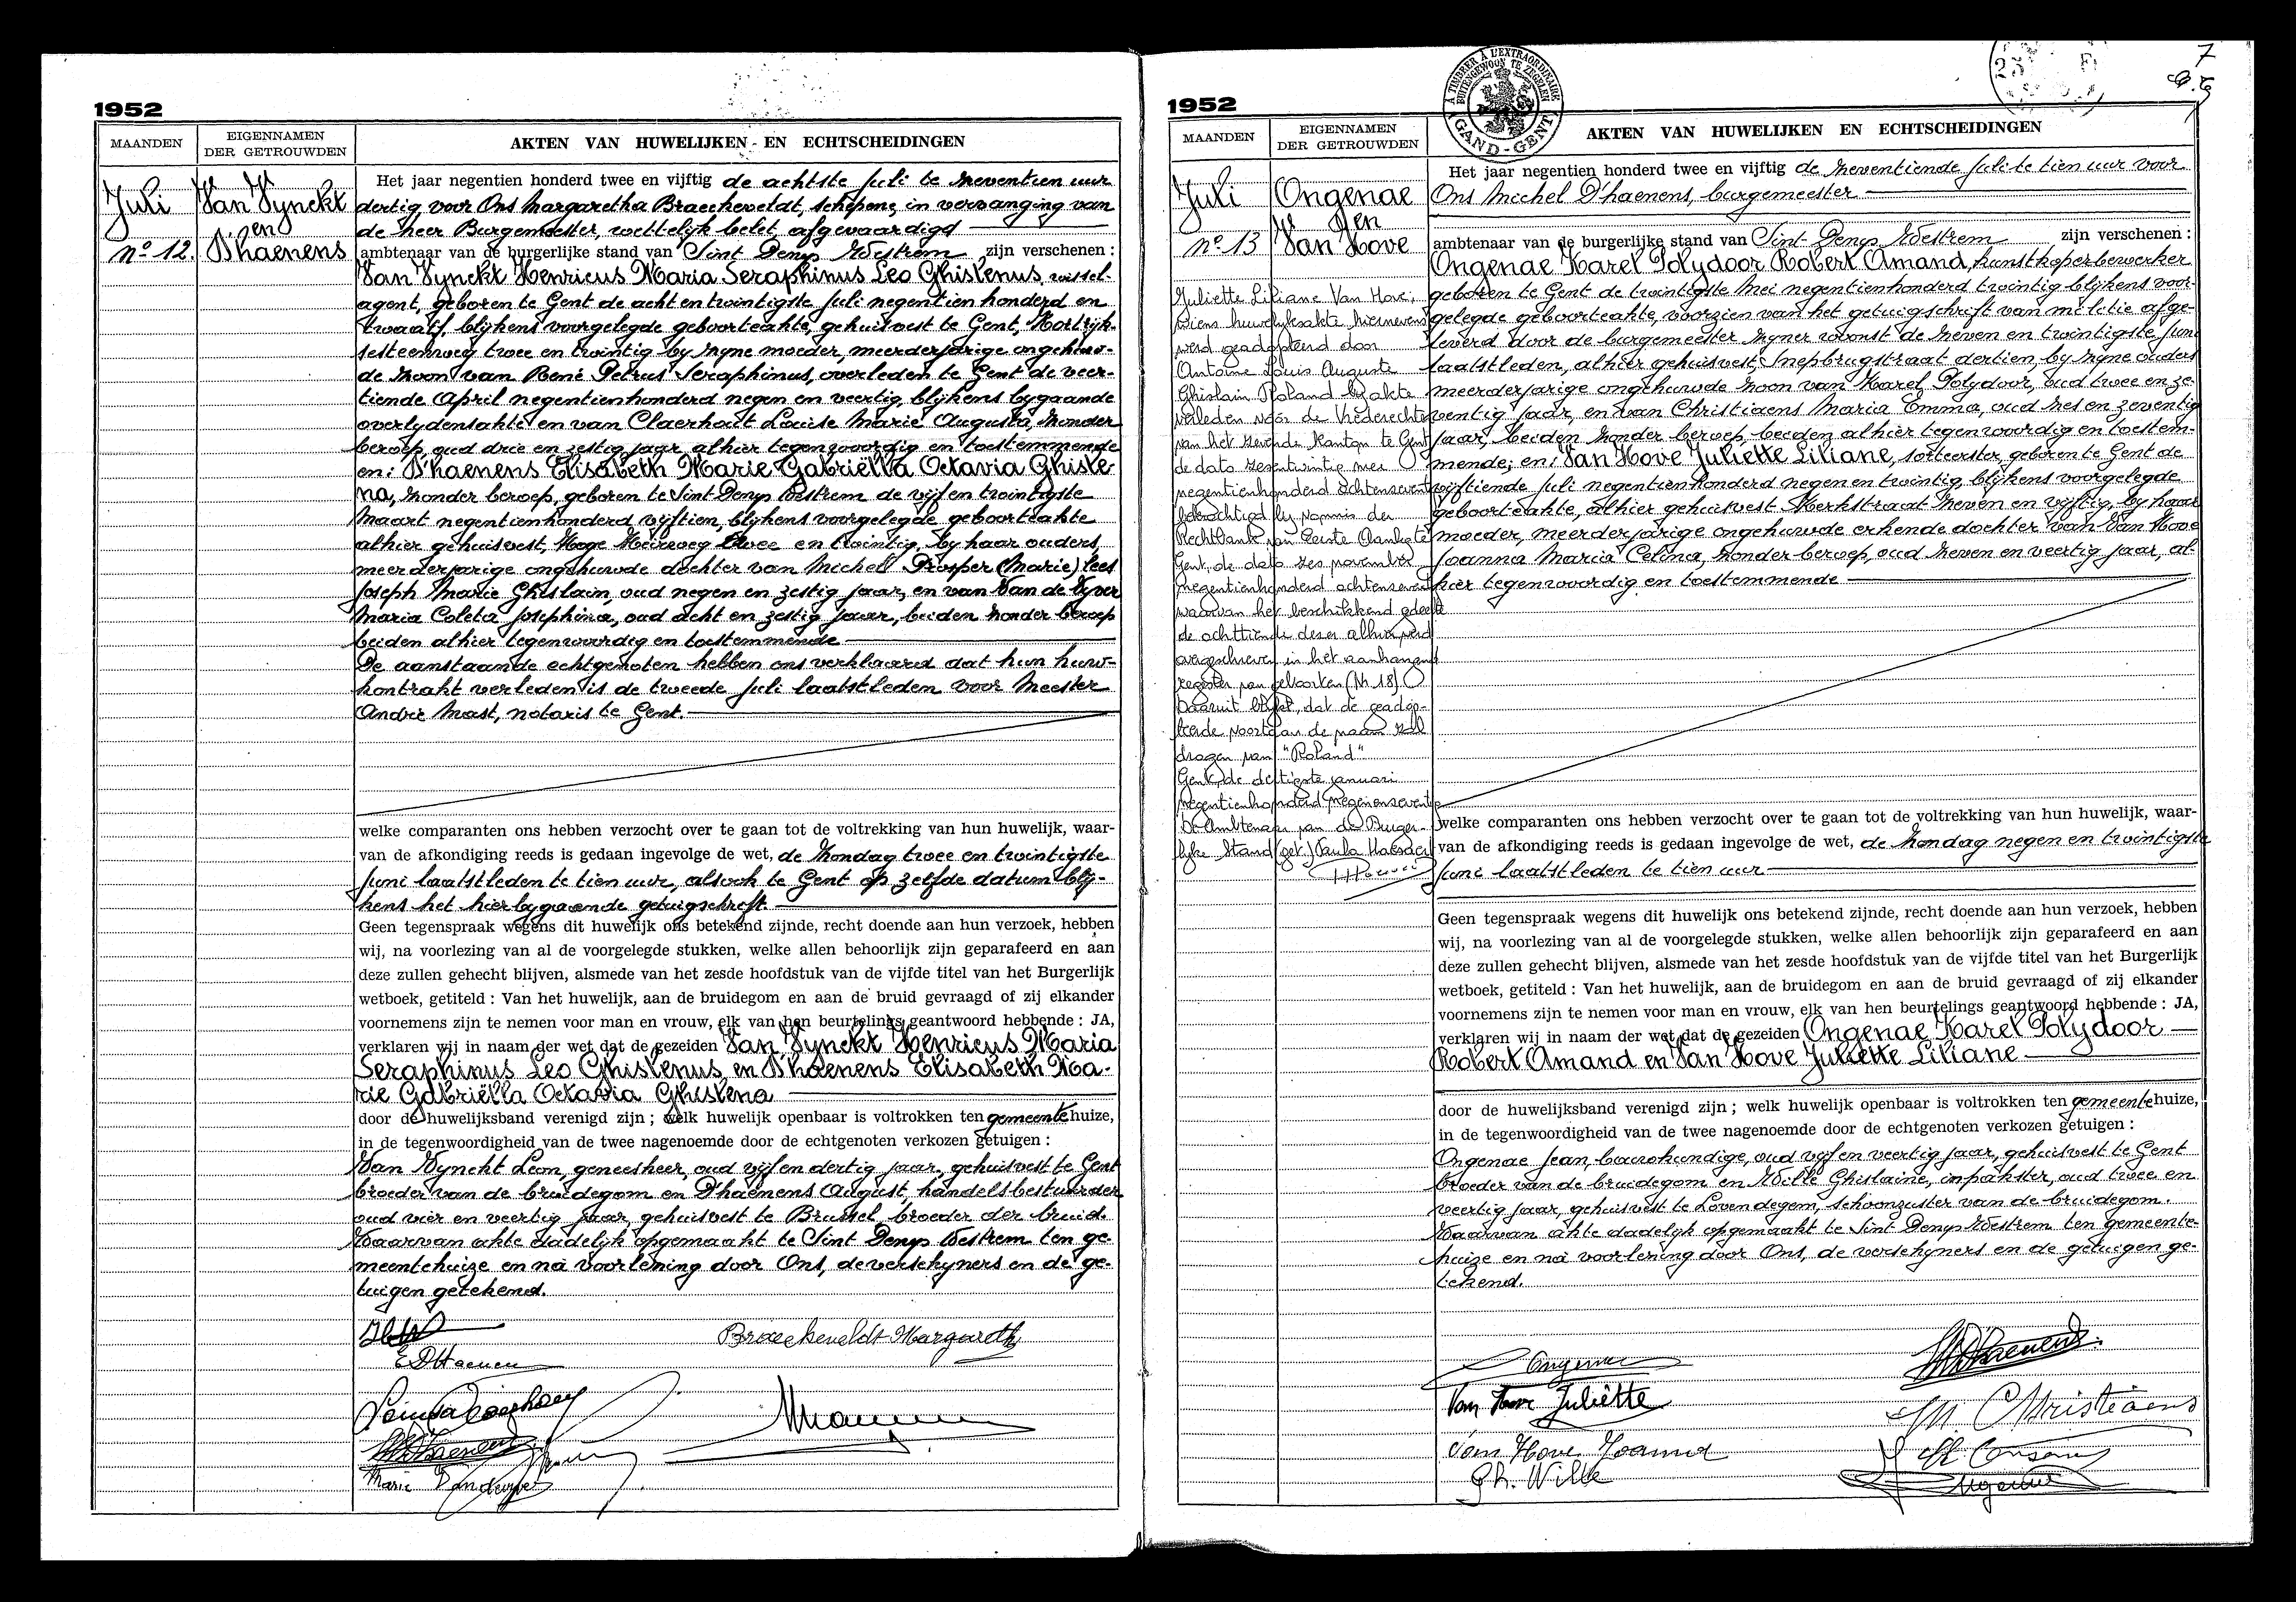 1952
MAANDEN
EIGENNAMEN
DER GETROUWDEN
AKTEN VAN HUWELIJKEN EN ECHTSCHEIDINGEN
Juli
nº 12.
Van Wynckt
en
D'haenens
Het jaar negentien honderd twee en vijftig de achtste Juli te zeventien uur
dertig, voor Ons Margaretha Braecheveldt, schepene, in vervanging van
de heer Burgemeester, wettelijk belet, afgevaardigd
ambtenaar van de burgerlijke stand van Sint Denys Westrem zijn verschenen :
Van Wynckt Henricus Maria Seraphinus Leo Ghislenus, wissel-
agent, geboren te Gent de acht en twintigste Juli negentien honderd en
twaalf, blijkens voorgelegde geboorteakte, gehuisvest te Gent, Kortrijk-
sesteenweg twee en twintig by zyne moeder, meerderjarige ongehuw-
de zoon van René Petrus Seraphinus, overleden te Gent de veer-
tiende April negentienhonderd negen en veertig, blijkens bygaande
overlydensakte en van Claerhout Louise Marie Augusta, zonder
beroep, oud drie en zestig jaar alhier tegenwoordig en toestemmende
en: D'haenens Elisabeth Marie Gabriëlla Octavia Ghisle-
na, zonder beroep, geboren te Sint Denys Westrem de vijf en twintigste
Maart negentienhonderd vijftien, blijkens voorgelegde geboorteakte
alhier gehuisvest, Hoge Heirweg twee en twintig, by haar ouders,
meerderjarige ongehuwde dochter van Michel Prosper (Marie) lees
Joseph Marie Ghislain, oud negen en zestig jaar, en van Van de Wyver
Maria Coleta Josephina, oud acht en zestig jaar, beiden zonder beroep
beiden alhier tegenwoordig en toestemmende
De aanstaande echtgenoten hebben ons verklaard dat hun huw-
kontrakt verleden is de tweede Juli laatstleden voor Meester
André Mast, notaris te Gent.
welke comparanten ons hebben verzocht over te gaan tot de voltrekking van hun huwelijk, waar-
van de afkondiging reeds is gedaan ingevolge de wet, de Zondag twee en twintigste
Juni laatstleden te tien uur, alsook te Gent op zelfde datum blij-
kens het hierbygaande getuigschrift.
Geen tegenspraak wegens dit huwelijk ons betekend zijnde, recht doende aan hun verzoek, hebben
wij, na voorlezing van al de voorgelegde stukken, welke allen behoorlijk zijn geparafeerd en aan
deze zullen gehecht blijven, alsmede van het zesde hoofdstuk van de vijfde titel van het Burgerlijk
wetboek, getiteld : Van het huwelijk, aan de bruidegom en aan de bruid gevraagd of zij elkander
voornemens zijn te nemen voor man en vrouw, elk van hen beurtelings geantwoord hebbende : JA,
verklaren wij in naam der wet dat de gezeiden Van Wynckt Henricus Maria
Seraphinus Leo Ghislenus en D'haenens Elisabeth Ma-
rie Gabriëlla Octavia Ghislena
door de huwelijksband verenigd zijn ; welk huwelijk openbaar is voltrokken ten gemeentehuize,
in de tegenwoordigheid van de twee nagenoemde door de echtgenoten verkozen getuigen :
Van Wynckt Leon, geneesheer, oud vijf en dertig jaar, gehuisvest te Gent
broeder van de bruidegom en D'haenens August, handelsbestuurder
oud vier en veertig jaar, gehuisvest te Brussel broeder der bruid.
Waarvan akte dadelyk opgemaakt te Sint Denys Westrem ten ge-
meentehuize en na voorlezing door Ons, de verschyners en de ge-
tuigen getekend.
Braecheveldt Margareth
E D'Haenen
Marie Vandewyver
1952
7
À TIMBRER À L'EXTRAORDINAIRE
BUITENGEWOON TE ZEGELEN
GAND-GENT
MAANDEN
EIGENNAMEN
DER GETROUWDEN
AKTEN VAN HUWELIJKEN EN ECHTSCHEIDINGEN
Juli
nº 13
Ongenae
en
Van Hove
Juliette Liliane Van Hove,
wiens huwelyksakte hiernevens
werd geadopteerd door
Antoine Louis Auguste
Ghislain Roland by akte
verleden vóór de Vrederechter
van het zevende Kanton te Gent
de dato zesentwintig mei
negentienhonderd achtenseventig
bekrachtigd by vonnis der
Rechtbank van Eerste Aanleg te
Gent, de dato zes november
negentienhonderd achtenseventig
waarvan het beschikkend gedeelte
de achttiende dezer alhier werd
overgeschreven in het aanhangend
register van geboorten (Nr 18)
Daaruit blykt, dat de geadop-
teerde voortaan de naam zal
dragen van "Roland"
Gent, de dertigste januari
negentienhonderd negenenseventig
De Ambtenaar van de Burger-
lyke Stand (get.) Paula
Het jaar negentien honderd twee en vijftig de zeventiende Juli te tien uur voor
Ons Michel D'haenens, burgemeester
ambtenaar van de burgerlijke stand van Sint Denys Westrem zijn verschenen :
Ongenae Karel Polydoor Robert Amand, kunstkoperbewerker
geboren te Gent de twintigste Mei negentienhonderd twintig blijkens voor-
gelegde geboorteakte, voorzien van het getuigschrift van militie afge-
leverd door de burgemeester zyner woonst de zeven en twintigste Juni
laatstleden, alhier gehuisvest, Snepbrugstraat dertien, by zyne ouders
meerderjarige ongehuwde zoon van Karel Polydoor, oud twee en ze-
ventig jaar, en van Christiaens Maria Emma, oud zes en zeventig
jaar, beiden zonder beroep, beiden alhier tegenwoordig en toestem-
mende; en: Van Hove Juliette Liliane, sorteerster, geboren te Gent de
vijftiende Juli negentienhonderd negen en twintig, blijkens voorgelegde
geboorteakte, alhier gehuisvest Kerkstraat zeven en vijftig, by haar
moeder, meerderjarige ongehuwde erkende dochter van Van Hove
Joanna Maria Celina, zonder beroep, oud zeven en veertig jaar, al-
hier tegenwoordig en toestemmende
welke comparanten ons hebben verzocht over te gaan tot de voltrekking van hun huwelijk, waar-
van de afkondiging reeds is gedaan ingevolge de wet, de Zondag negen en twintigste
Juni laatstleden te tien uur
Geen tegenspraak wegens dit huwelijk ons betekend zijnde, recht doende aan hun verzoek, hebben
wij, na voorlezing van al de voorgelegde stukken, welke allen behoorlijk zijn geparafeerd en aan
deze zullen gehecht blijven, alsmede van het zesde hoofdstuk van de vijfde titel van het Burgerlijk
wetboek, getiteld : Van het huwelijk, aan de bruidegom en aan de bruid gevraagd of zij elkander
voornemens zijn te nemen voor man en vrouw, elk van hen beurtelings geantwoord hebbende : JA,
verklaren wij in naam der wet dat de gezeiden Ongenae Karel Polydoor
Robert Amand en Van Hove Juliette Liliane
door de huwelijksband verenigd zijn ; welk huwelijk openbaar is voltrokken ten gemeentehuize,
in de tegenwoordigheid van de twee nagenoemde door de echtgenoten verkozen getuigen :
Ongenae Jean, bouwkundige, oud vijf en veertig jaar, gehuisvest te Gent
broeder van de bruidegom en Wille Ghislaine, inpakster, oud twee en
veertig jaar, gehuisvest te Lovendegem, schoonzuster van de bruidegom.
Waarvan akte dadelyk opgemaakt te Sint Denys Westrem ten gemeente-
huize en na voorlezing door Ons, de verschyners en de getuigen ge-
tekend.
Ongenae
Van Hove Juliëtte
M Christiaens
Van Hove Joanna
Gh. Wille